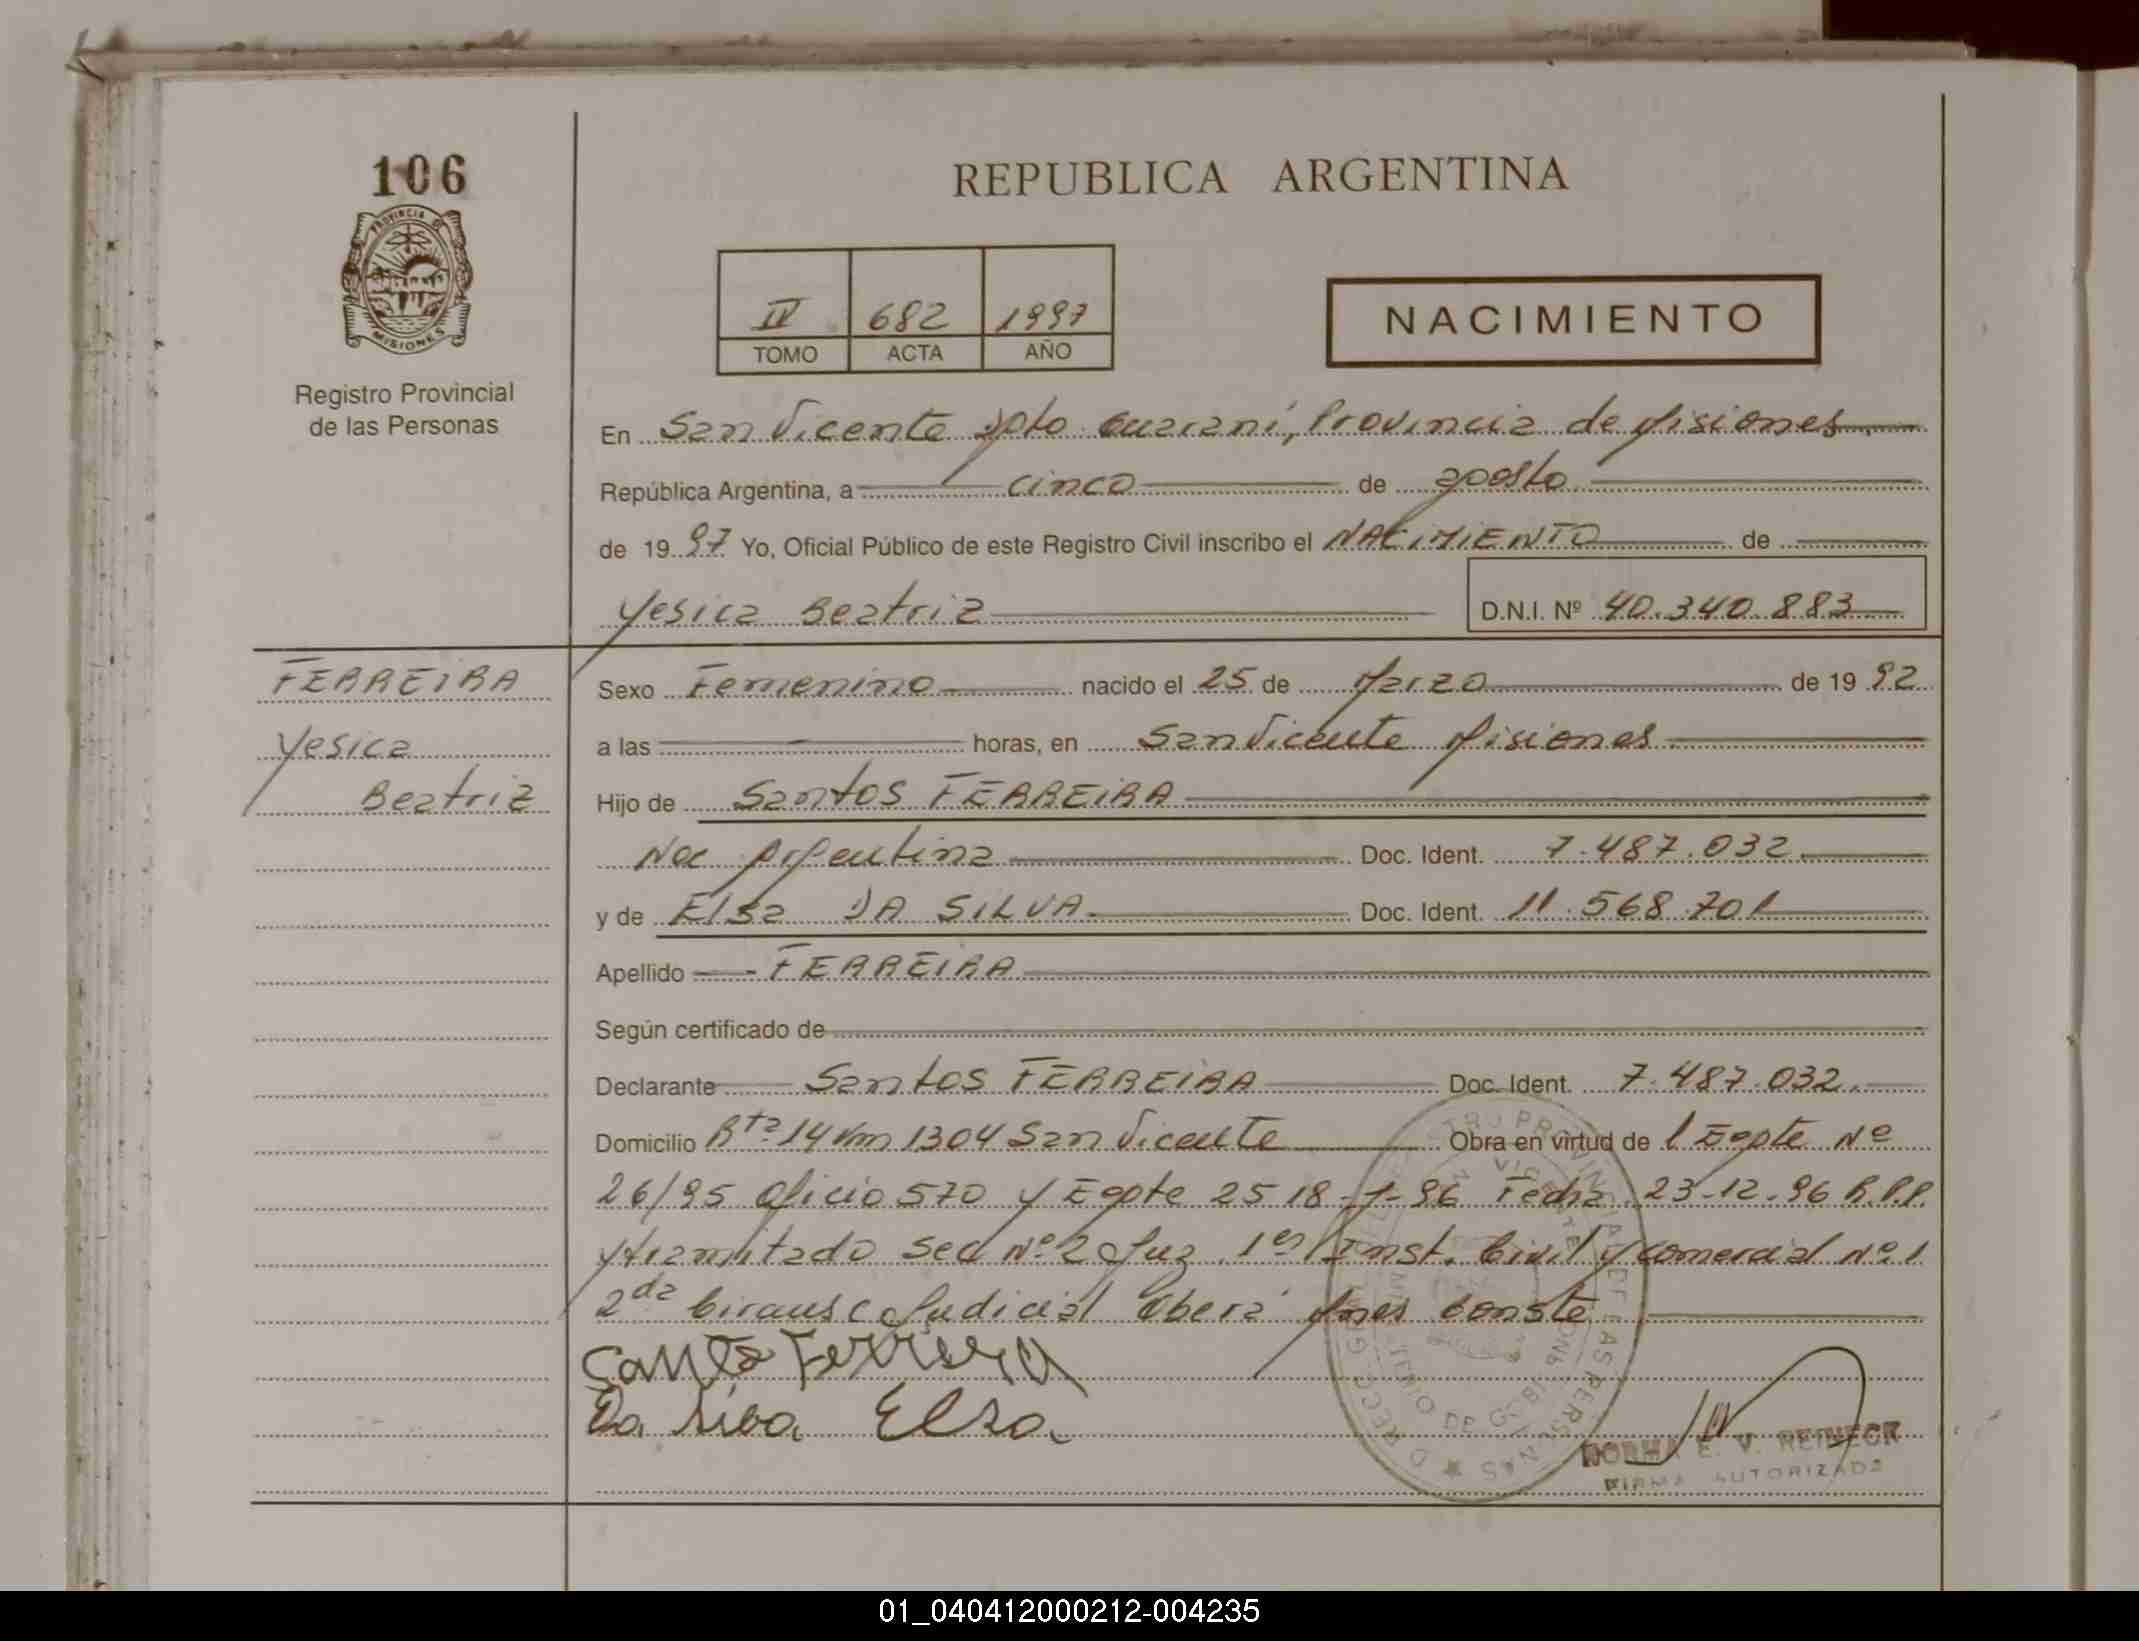 106
REPUBLICA ARGENTINA
PROVINCIA DE
MISIONES
Registro Provincial
de las Personas
IV 682 1997
TOMO ACTA AÑO
NACIMIENTO
En San Vicente dpto Guaraní, Provincia de Misiones
República Argentina, a cinco de agosto
de 1997 Yo, Oficial Público de este Registro Civil inscribo el NACIMIENTO de
Yesica Beatriz D.N.I. Nº 40.340.883
FERREIRA
Yesica
Beatriz
Sexo Femenino nacido el 25 de Marzo de 1992
a las horas, en San Vicente Misiones
Hijo de Santos FERREIRA
Nac Argentina Doc. Ident. 7.487.032
y de Elsa DA SILVA Doc. Ident. 11.568.701
Apellido FERREIRA
Según certificado de
Declarante Santos FERREIRA Doc. Ident. 7.487.032
Domicilio Rta 14 Km 1304 San Vicente Obra en virtud de l Expte Nº
26/95 Oficio 570 y Expte 25 18-7-96 Fecha 23-12-96 R.P.P.
y tramitado Sec Nº 2 Juz 1er Inst. Civil y Comercial Nº 1
2da Circunsc Judicial Oberá Mnes Conste
Santo Ferreira
Da Silva Elsa
NORMA E. V. REINECK
FIRMA AUTORIZADA
01_040412000212-004235